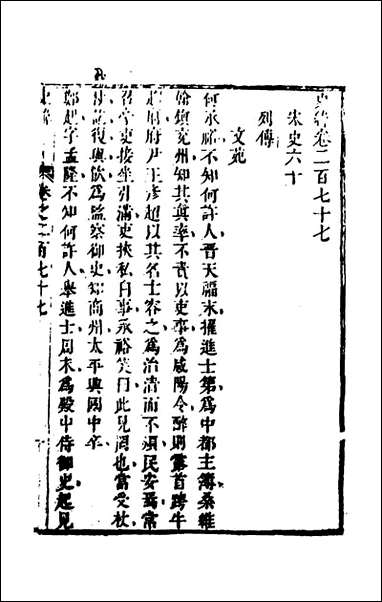 史緯卷二百七十七
宋史六十
列傳
文苑
何承裕不知何許人晉天福末擢進士第爲中都主簿桑維
翰鎮兗州知其真率不責以吏事爲咸陽令醉則露首跨牛
趨府府尹王彥超以其名士容之爲治清而不煩民安焉嘗
召豪吏接坐引滿吏挾私白事承裕笑曰此見罔也當受杖
杖訖復與飲爲監察御史知商州太平興國中卒
鄭起字孟隆不知何許人舉進士周末爲殿中侍御史起見
史緯 卷之二百七十七